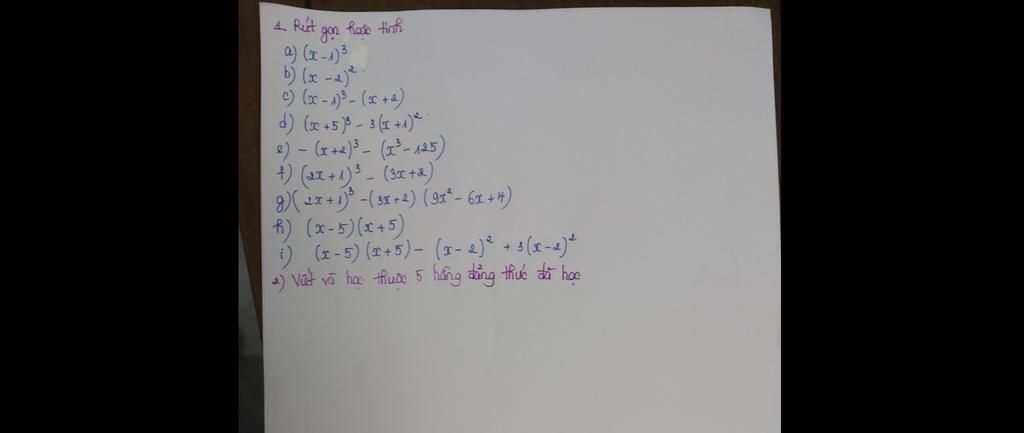 1. Rút gọn hoặc tính
a) (x - 1)³
b) (x - 2)²
c) (x - 1)³ - (x + 2)
d) (x + 5)³ - 3(x + 1)²
e) - (x + 2)³ - (x³ - 125)
f) (2x + 1)³ - (3x + 2)
g) (2x + 1)³ - (3x + 2) (9x² - 6x + 4)
h) (x - 5) (x + 5)
i) (x - 5) (x + 5) - (x - 2)² + 3(x - 2)²
2) Viết và học thuộc 5 hằng đẳng thức đã học